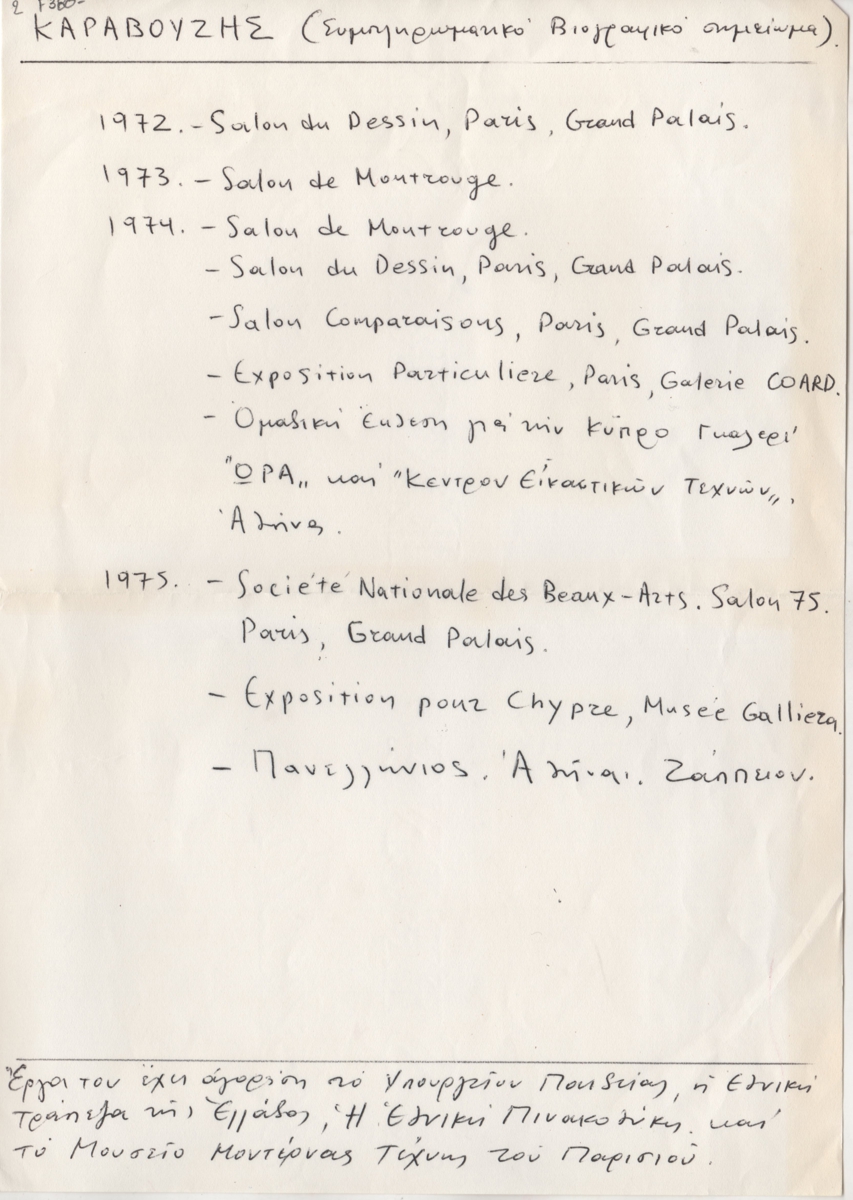 ΚΑΡΑΒΟΥΖΗΣ (Συμπληρωματικό Βιογραφικό σημείωμα).
1972. - Salon du Dessin, Paris, Grand Palais.
1973. - Salon de Montrouge.
1974. - Salon de Montrouge.
- Salon du Dessin, Paris, Grand Palais.
- Salon Comparaisons, Paris, Grand Palais.
- Exposition Particuliere, Paris, Galerie COARD.
- Ομαδική Εκθεση γιά την Κύπρο Γκαλερί
"ΩΡΑ„ καί "Κεντρον Εἰκαστικῶν Τεχνῶν„,
Ἀθήνα.
1975. - Société Nationale des Beaux-Arts. Salon 75.
Paris, Grand Palais.
- Exposition pour Chypre, Musée Galliera.
- Πανελλήνιος. Ἀθῆναι. Ζάππειον.
Ἔργα του ἔχει ἀγοράσει τό Υπουργεῖον Παιδείας, ἡ Εθνική
Τράπεζα τῆς Ἑλλάδος, Ἡ Ἐθνική Πινακοθήκη. καί
τό Μουσεῖο Μοντέρνας Τέχνης τοῦ Παρισιοῦ.